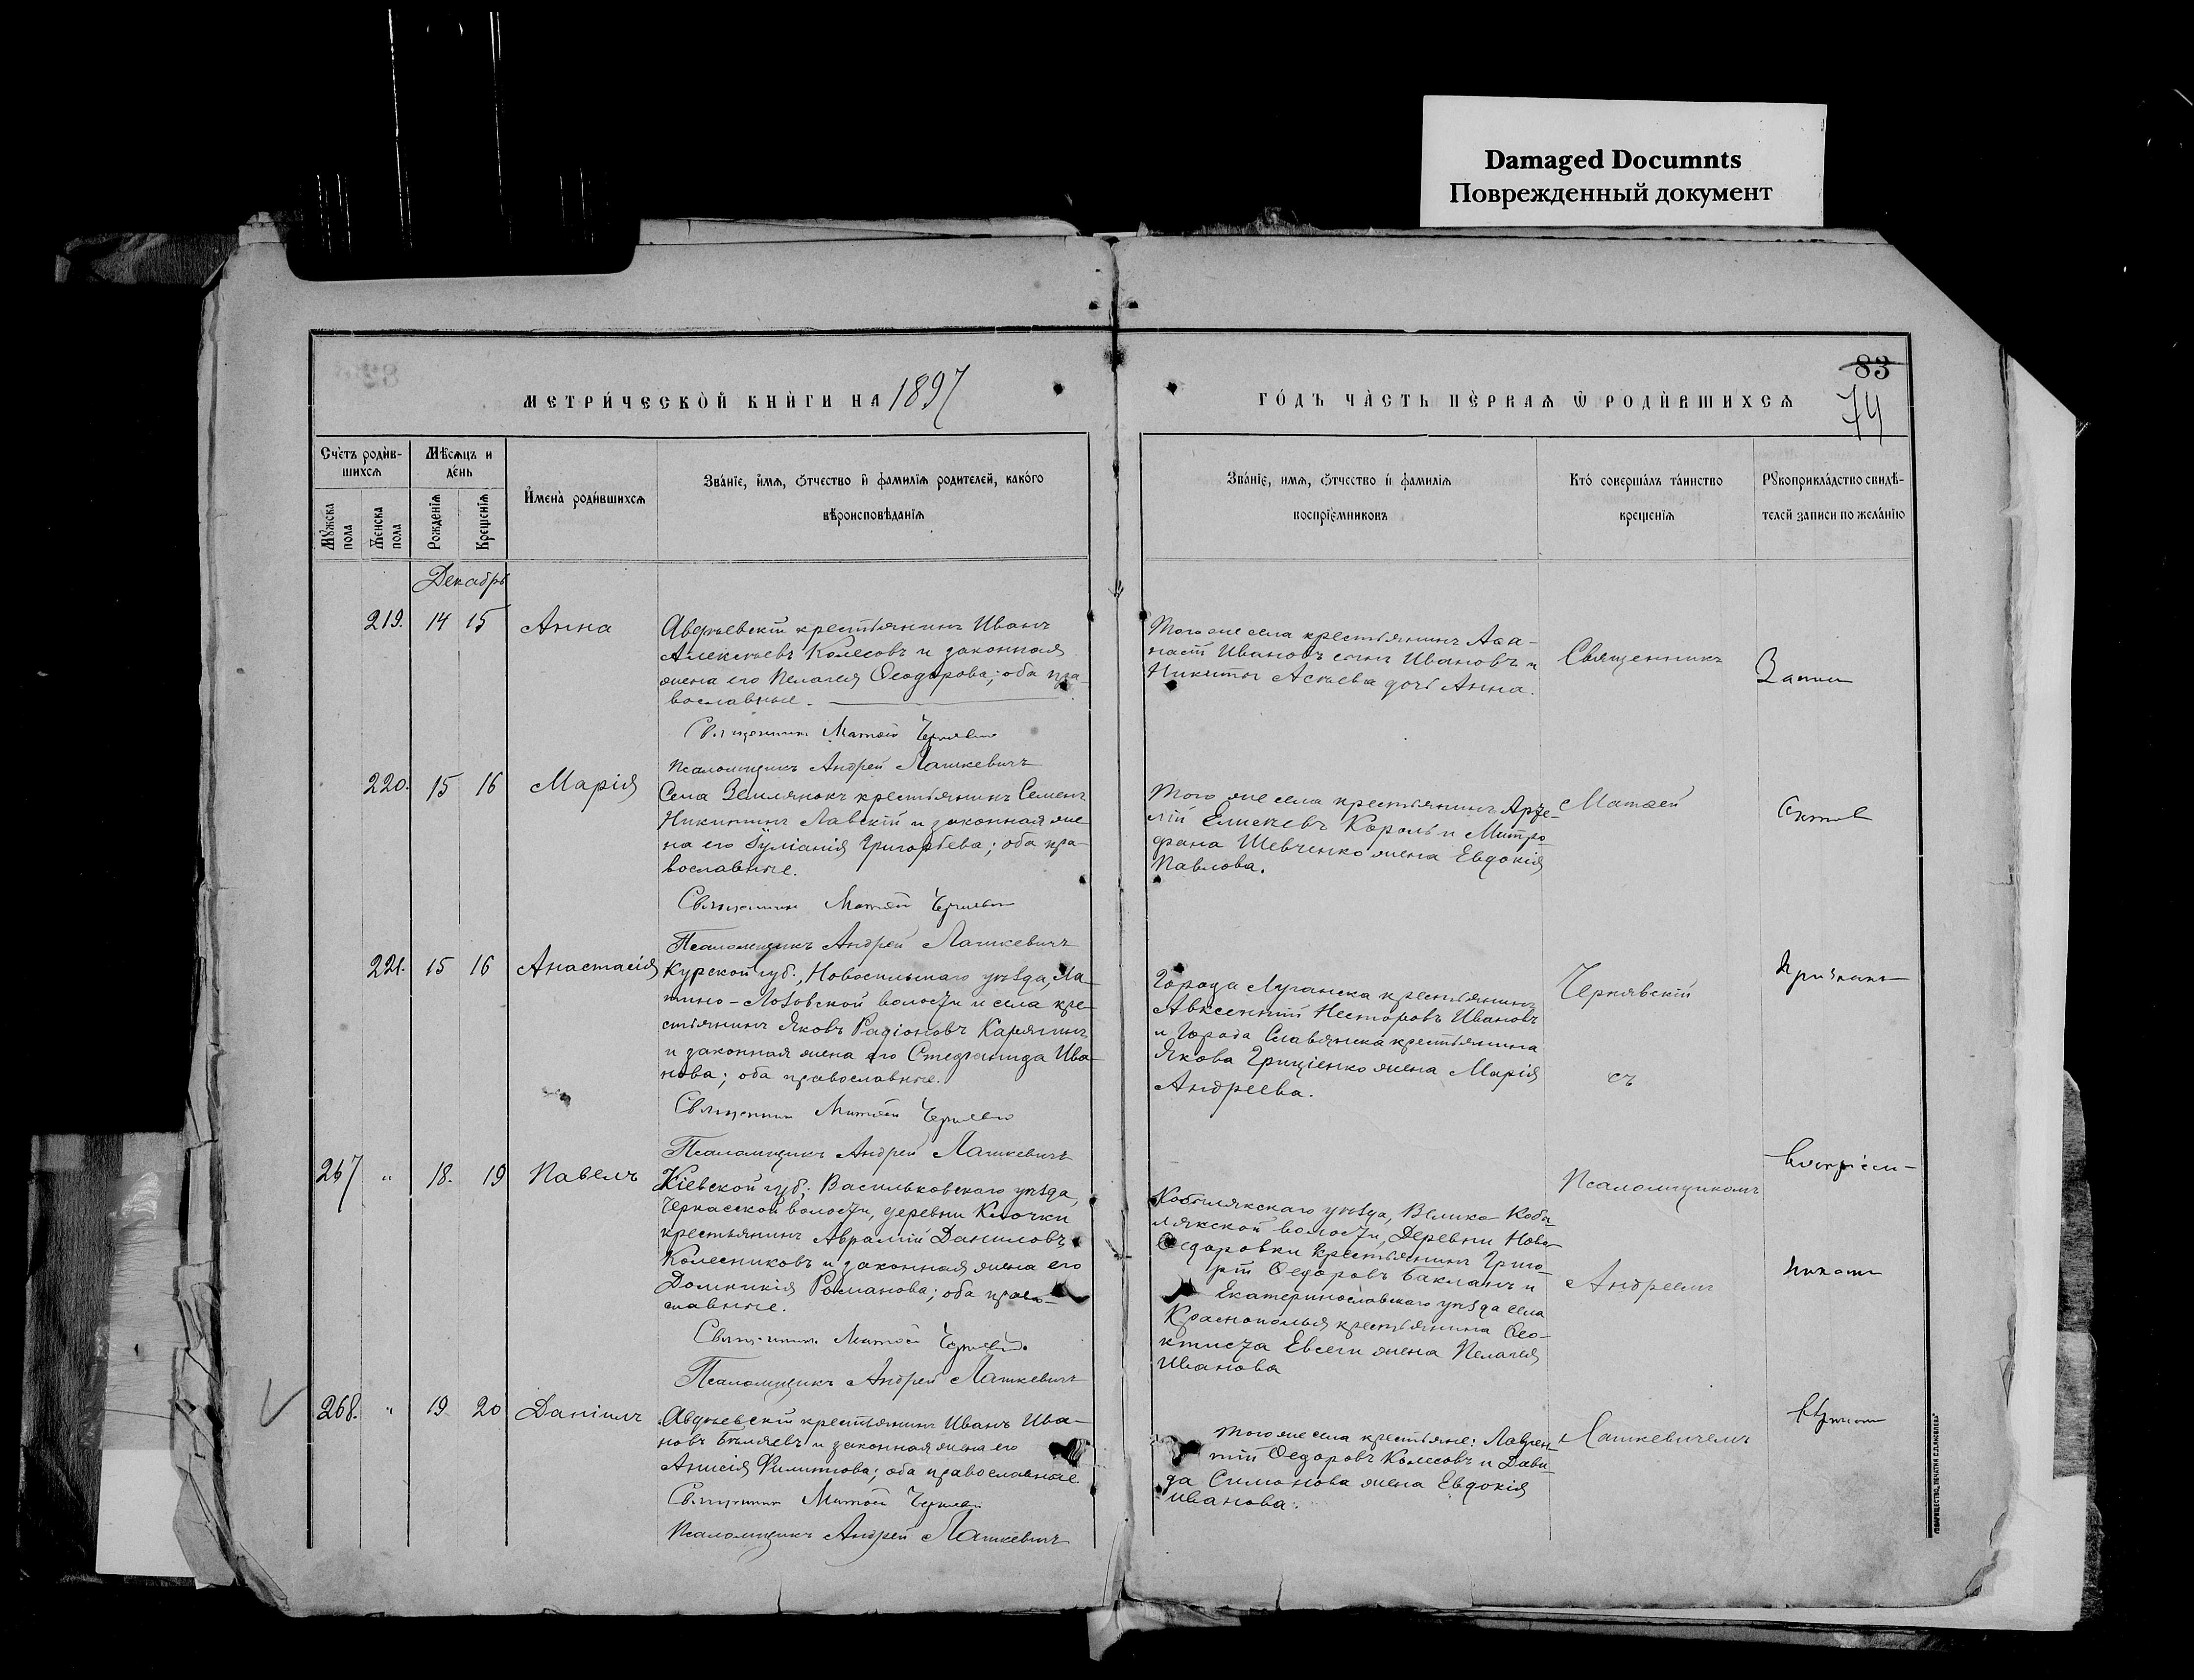 Damaged Documnts
Поврежденный документ
83
74
МЕТРИ́ЧЕСКОЙ КНИ́ГИ НА 1897
ГО́ДЪ ЧА́СТЬ ПЕ́РВАѦ Ѡ РОДИ́ВШИХСѦ
Сче́тъ роди́в-
шихсѧ
Мꙋ́жска
пола
Же́нска
пола
Мѣ́сѧцъ и
де́нь
Рожденїѧ
Крещенїѧ
И҆мена̀ роди́вшихсѧ
Зва́нїе, и҆́мѧ, ѻ҆́тчество и҆ фамилїѧ родителей, како́го
вѣроисповѣ́данїѧ
Зва́нїе, имѧ, ѻ҆́тчество и҆ фамилїѧ
воспрїе́мниковъ
Кто́ соверша́лъ та́инство
крещенїѧ
Рꙋкоприкла́дство свидѣ́-
телей записи по жела́нїю
Декабрь
219. 14 15 Анна
Авдѣевскій крестьянинъ Иванъ
Алексѣевъ Колесовъ и законная
жена его Пелагея Ѳеодорова; оба пра-
вославные.
Священникъ Матѳей Чернявскій
Псаломщикъ Андрей Лашкевичъ
Того же села крестьянинъ Аѳа-
насій Ивановъ сынъ Ивановъ и
Никиты Асѣева дочь Анна.
Священникъ
220. 15 16 Марія
Села Землянокъ крестьянинъ Семенъ
Никитинъ Лавскій и законная же-
на его Іуліанія Григорьева; оба пра-
вославные.
Священникъ Матѳей Чернявскій
Псаломщикъ Андрей Лашкевичъ
Того же села крестьянинъ
Елисеевъ Король и Митро-
фана Шевченко жена Евдокія
Павлова.
Матѳей
221. 15 16 Анастасія
Курской губ., Новосильскаго уѣзда,
волости и села кре-
стьянинъ Яковъ Радіоновъ Карягинъ
и законная жена его Стефанида Ива-
нова; оба православные.
Священникъ Матѳей Чернявскій
Псаломщикъ Андрей Лашкевичъ
Города Луганска крестьянинъ
Авксентій Несторовъ Ивановъ
и Города Славянска крестьянина
Якова Гриценко жена Марія
Андреева.
Чернявскій
съ
267 " 18. 19 Павелъ
Кіевской губ., Васильковскаго уѣзда,
Черкасской волости, деревни Клочки
крестьянинъ Аврамій Даниловъ
Колесниковъ и законная жена его
Домникія Романова; оба право-
славные.
Священникъ Матѳей Чернявскій
Псаломщикъ Андрей Лашкевичъ
Кобылякскаго уѣзда, Велико-Кобы-
лякской волости, Деревни Ново-
Ѳедоровки крестьянинъ Григо-
рій Ѳедоровъ Бакланъ и
Екатеринославскаго уѣзда села
Краснополья крестьянина Ѳео-
ктиста Евсеги жена Пелагея
Иванова
Псаломщикомъ
Андреемъ
268. " 19 20 Даніилъ
Авдѣевскій крестьянинъ Иванъ Ива-
новъ Бѣляевъ и законная жена его
Анисія Филиппова; оба православные
Священникъ Матѳей Чернявскій
Псаломщикъ Андрей Лашкевичъ
Того же села крестьяне: Лаврен-
тій Ѳедоровъ Колесовъ и Дави-
да Симонова жена Евдокія
Иванова.
Лашкевичемъ